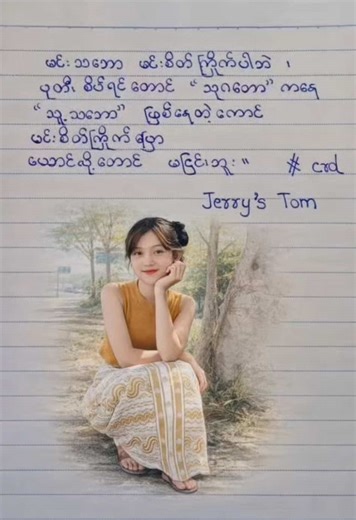 မင်း သဘော မင်းစိတ်ကြိုက်ပါဘဲ ၊
ပုတီး စိပ်ရင်တောင် “ သုဂတော” ကနေ
“သူ့ သဘော” ဖြစ်နေတဲ့ကောင်
မင်းစိတ်ကြိုက် ပြော
ယောင်လို့တောင် မငြင်းဘူး ။ # crd
Jerry's Tom